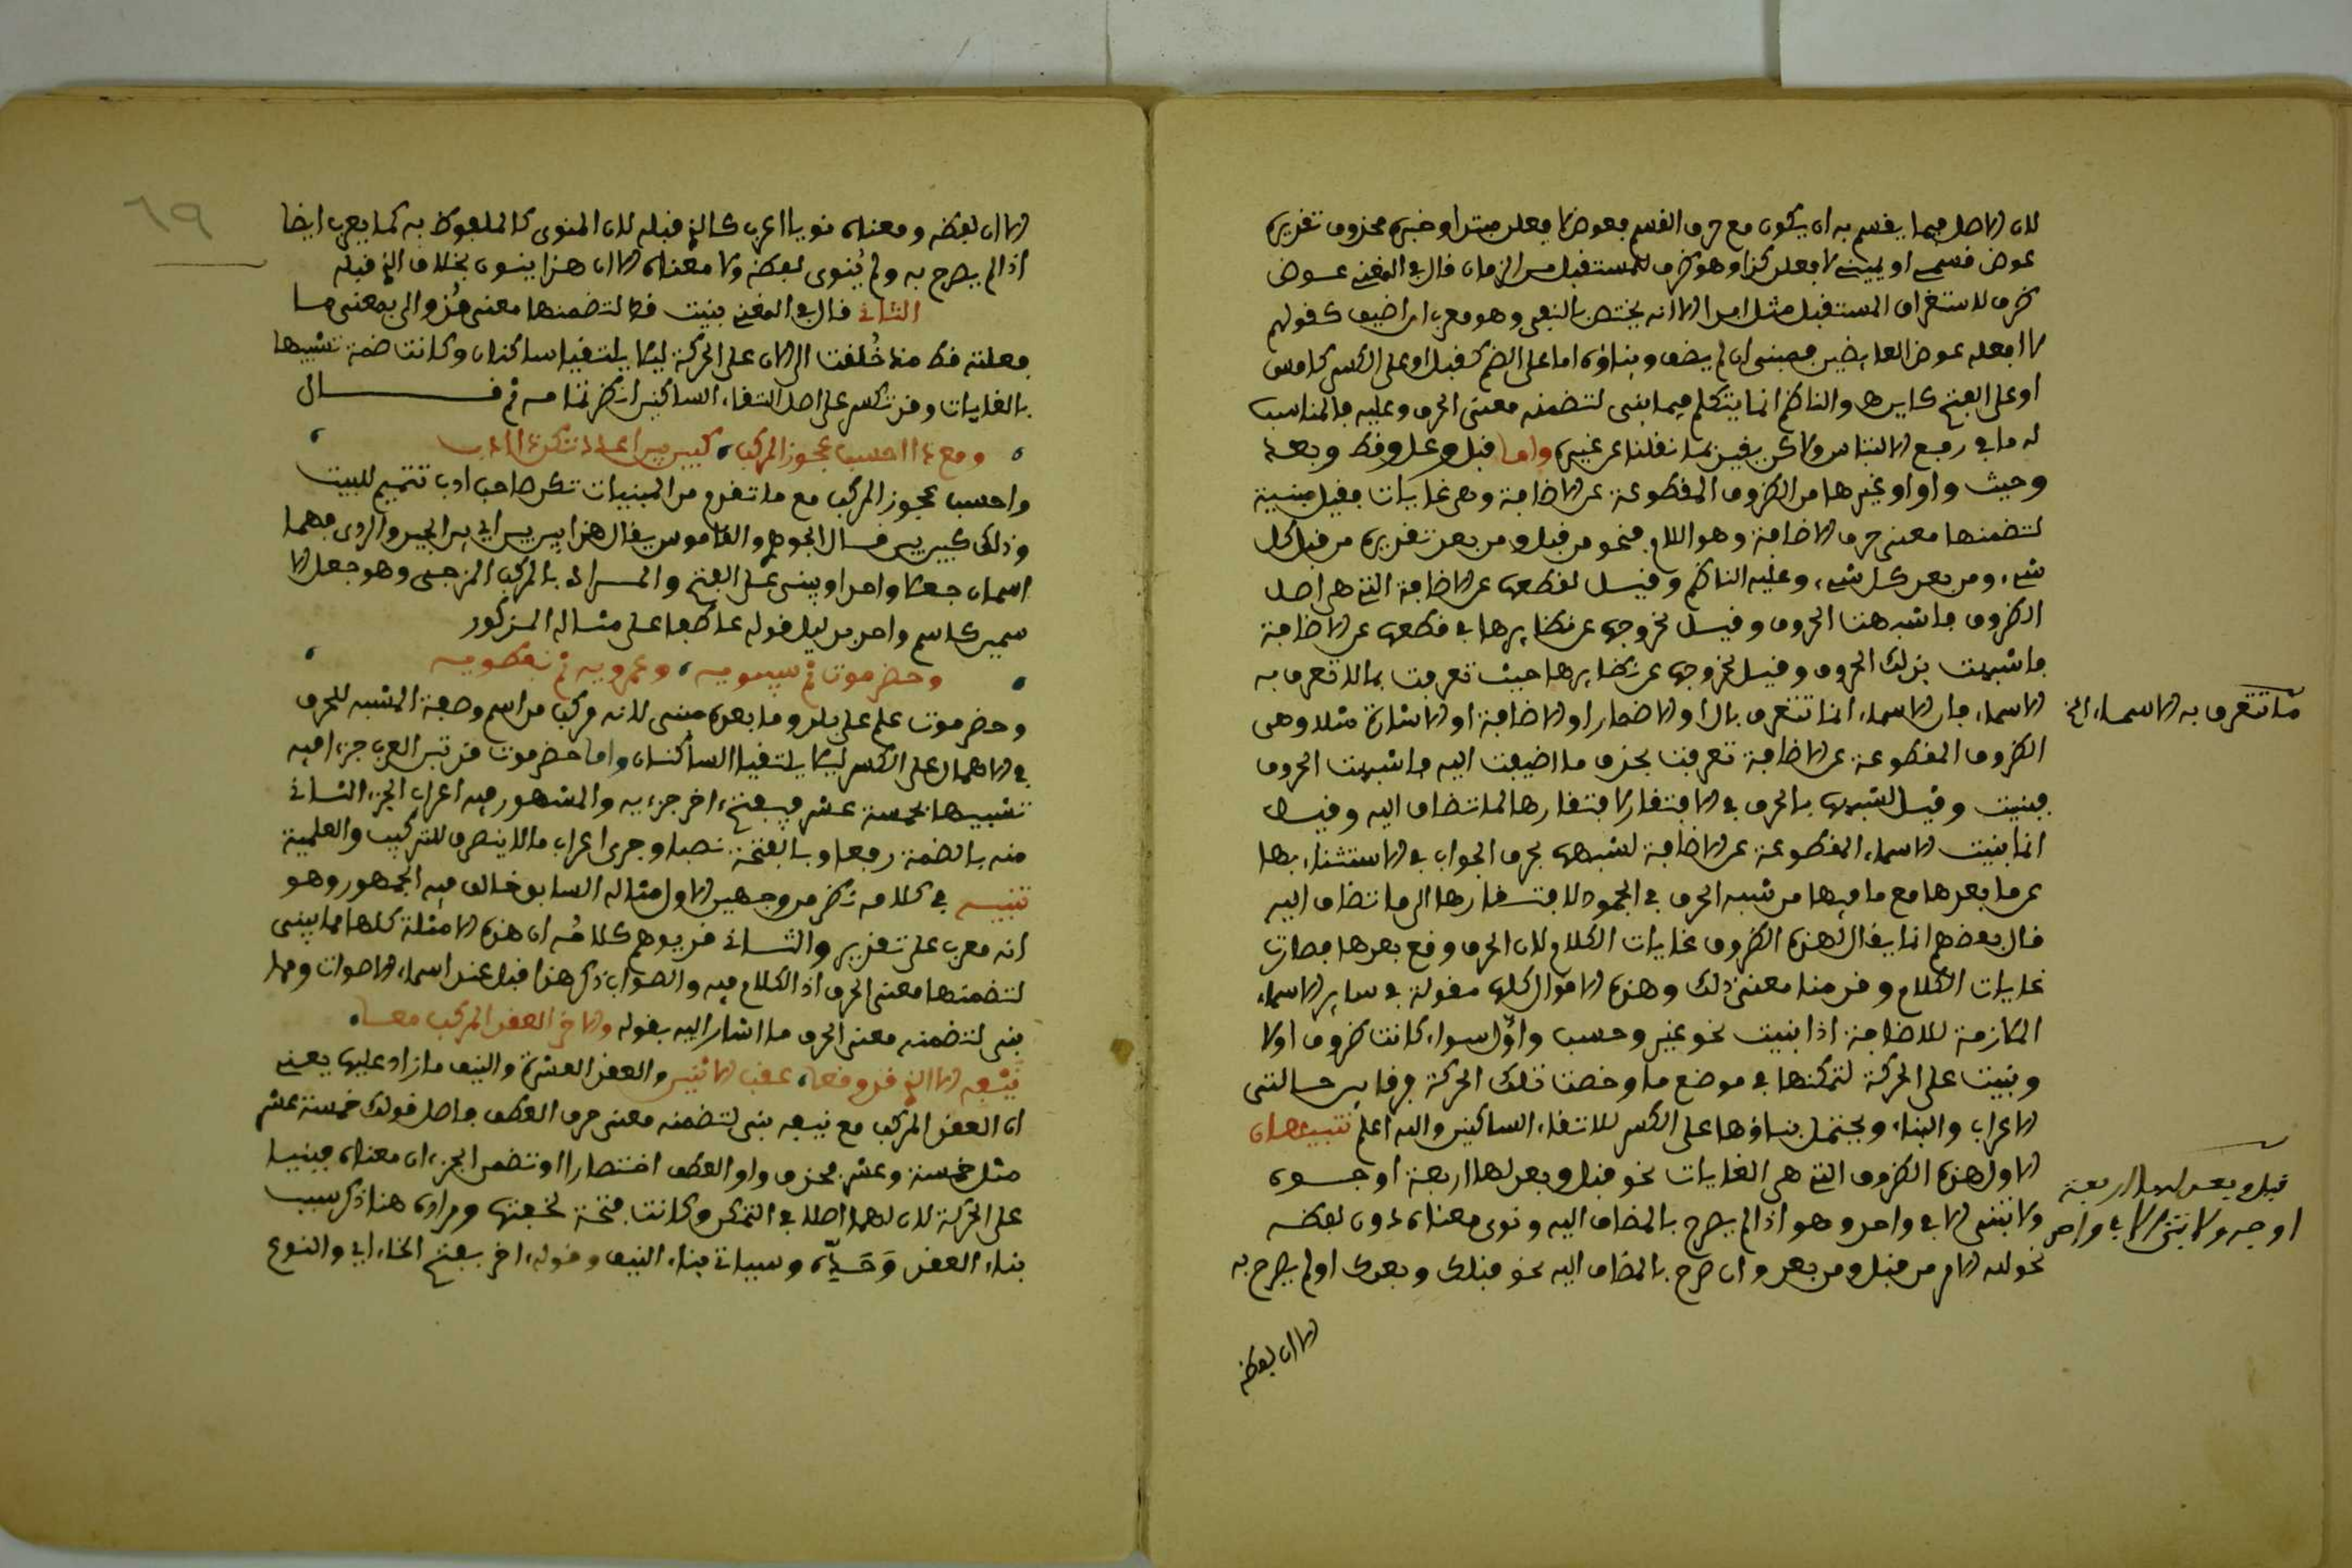 لان الاصل فيما يقسم به ان يكون مع حرف القسم فعوض لا فعلن مبتدا وخبره محذوف تقديره
عوض قسمي او يميني لا فعلن كذا وهو ظرف للمستقبل من الزمان قال في المغني عوض
ظرف لاستغراق المستقبل مثل ابدا الا انه يختص بالنفي وهو معرب ان اضيف كقولهم
لا افعله عوض العايضين مبني ان لم يضف وبناؤه اما على الضم كقبل او على الكسر كامس
او على الفتح كاين والناظم انما يتكلم فيما بني لتضمنه معنى الحرف وعليه فالمناسب
له ما في رفع الالتباس ولاكن يقين ما نقلنا عن غيره واما قبل وعل وقط وبعد
وحيث واو او غيرها من الظروف المقطوعة عن الاضافة وهي غايات فقيل مبنية
لتضمنها معنى حرف الاضافة وهو اللام فنحو من قبل ومن بعد تقديره من قبل كل
شيء ومن بعد كل شيء وعليه الناظم وقيل لقطعها عن الاضافة التي هي اصل
الظروف فاشبهت الحروف وقيل لخروجها عن نظايرها في قطعها عن الاضافة
فاشبهت بذلك الحروف وقيل لخروجها عن نظايرها حيث تعرفت بما لا تتعرف به
الاسماء فان الاسماء انما تتعرف بال او الاضمار او الاضافة او الاشارة مثلا وهي
الظروف المقطوعة عن الاضافة تعرفت بحذف ما اضيفت اليه فاشبهت الحروف
فبنيت وقيل لشبهها بالحرف في الافتقار لافتقارها لما تضاف اليه وقيل
انما بنيت الاسماء المقطوعة عن الاضافة لشبهها بحرف الجواب في الاستغناء بها
عن ما بعدها مع ما فيها من شبه الحرف في الجمود لافتقارها الى ما تضاف اليه
قال بعضهم انما يقال لهذه الظروف غايات الكلام لان الحرف وقع بعدها فصارت
غايات الكلام وقدمنا معنى ذلك وهذه الاقوال كلها مقولة في ساير الاسماء
الملازمة للاضافة اذا بنيت نحو غير وحسب واول سواء كانت ظروف او لا
وبنيت على الحركة لتمكنها في موضع ما وخصت تلك الحركة فرقا بين حالتي
الاعراب والبناء ويحتمل بناؤها على الكسر لالتقاء الساكنين والله اعلم تنبيهان
الاول هذه الظروف التي هي الغايات نحو قبل وبعد لها اربعة اوجه
ولا تبنى الا في واحد وهو اذا لم يصرح بالمضاف اليه ونوى معناه دون لفظه
نحو لله الامر من قبل ومن بعد وان صرح بالمضاف اليه نحو قبلك وبعدك او لم يصرح به
الا ان لفظه
ما تتعرف به الاسماء الخ
قبل وبعد لهما اربعة
اوجه ولا تبنى الا في واحد
٦٩
الا ان لفظه ومعناه نويا اعرب كالذي قبله لان المنوى كالملفوظ به كما يعرب ايضا
اذا لم يصرح به ولم يُنوى لفظه ولا معناه الا ان هذا ينون بخلاف الذي قبله
الثاني قال في المغني بنيت قط لتضمنها معنى مُذ والى بمعنى ما
فعلته قط منذ خُلقت الى الان على الحركة ليلا يلتقيا ساكنان وكانت ضمة تشبيها
بالغايات وقد تكسر على اصل التقاء الساكنين انظر تمامه ثم قال
ومع ذا احسب عجوز المركب، كبير بيرا علا تكن
واحسب عجوز المركب مع ما تقدم من المبنيات تكن صاحب ادب تتميم للبيت
وذلك كبير بير قال الجوهري والقاموس يقال هذا بير بير اي بين الجيد والردى فهما
اسمان جعلا واحدا وبني على الفتح والمراد بالمركب المزجي وهو جعل الا
سمين كاسم واحد بدليل قوله عاطفا على مثاله المذكور
وحضرموت ثم سيبويه، وعمرويه ثم نفطويه
وحضرموت علم على بلد وما بعده مبني لانه مركب من اسم وصفة المشبه للحرف
في الاهمال على الكسر ليلا يلتقيا الساكنان واما حضرموت فرتبن العرب جزءا فيه
تشبيها بخمسة عشر فيفتح اخر جزءيه والمشهور فيه اعراب الجزء الثاني
منه بالضمة رفعا وبالفتحة نصبا وجرى اعراب ما لا ينصرف للتركيب والعلمية
تنبيه في كلامه نظر من وجهين الاول مثاله السابق خالف فيه الجمهور وهو
انه معرب على تقدير والثاني قد يوهم كلامُه ان هذه الامثلة كلها مما يبنى
لتضمنها معنى الحرف اذ الكلام فيه والصواب ذكر هذا قبل عند اسماء الاصوات ومما
بني لتضمنه معنى الحرف ما اشار اليه بقوله والاخر العقد المركب معا،
نيفه الا الذي قد وقعا، عقب الاثنين والعقد العشرة والنيف ما زاد عليها يعني
ان العقد المركب مع نيفه بني لتضمنه معنى حرف العطف فاصل قولك خمسة عشر
مثل خمسة وعشر فحذف واو العطف اختصارا وتضمن الجزءان معناه فبنيا
على الحركة لان لهما اصلا في التمكن وكانت فتحة لخفتها ومراده هنا ذكر سبب
بناء العقد وَحَدِّهِ وسياتي بناء النيف وقوله اخر بفتح الخاء اي والنوع